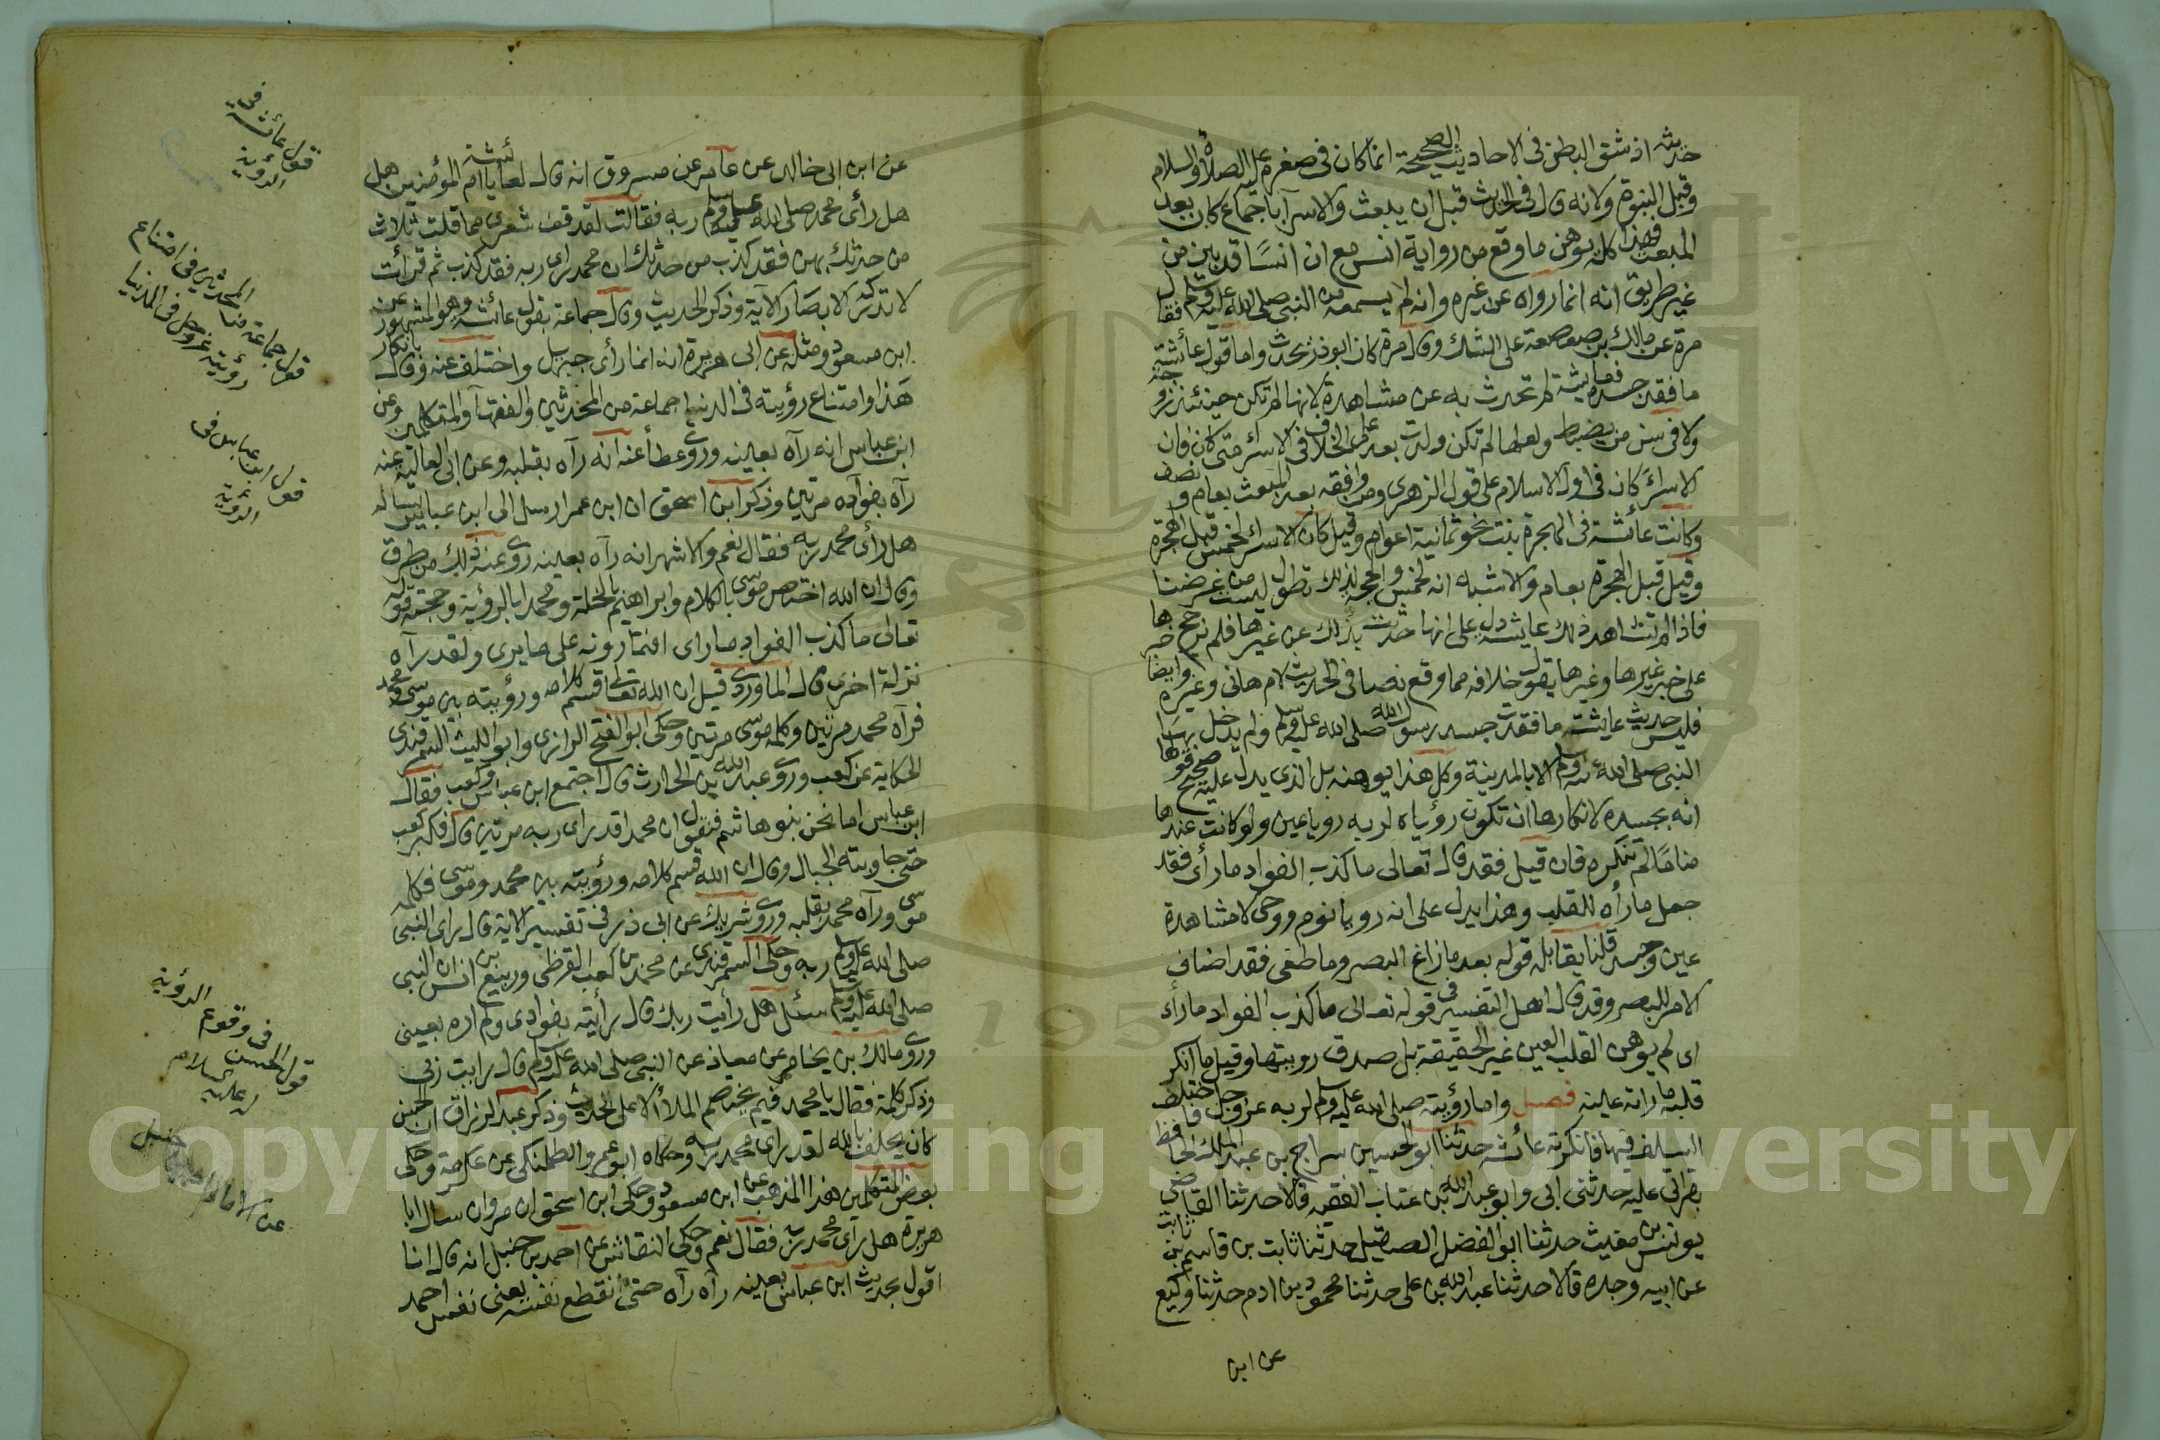 حديثه اذ شق البطن فى الاحاديث الصحيحة انما كان فى صغره عليه الصلاة والسلام
وقبل النبوة ولانه قال فى الحديث قبل ان يبعث والاسرآ باجماع كان بعد
المبعث فهذا كله يوهن ما وقع من رواية انس مع ان انسًا قد بين من
غير طريق انه انما رواه عن غيره وانه لم يسمعه من النبى صلى الله عليه وسلم فقال
مرة عن مالك بن صعصعة على الشك وقال مرة كان ابو ذر يحدث واما قول عائشة
ما فقد جسده فعايشة لم تحدث به عن مشاهدة لانها لم تكن حينئذ زوجه
ولا فى سن من يضبط ولعلها لم تكن ولدت بعد على الخلاف فى الاسرآ متى كان فان
الاسرآ كان فى اول الاسلام على قول الزهرى ومن وافقه بعد المبعث بعام ونصف
وكانت عائشة فى الهجرة بنت نحو ثمانية اعوام وقيل كان الاسرآ لخمس قبل الهجرة
وقيل قبل الهجرة بعام والاشبه انه لخمس والحجة لذلك تطول ليست من غرضنا
فاذا لم تشاهد ذلك عايشة دل على انها حدثت بذلك عن غيرها فلم نرجح خبرها
على خبر غيرها وغيرها يقول خلافه مما وقع نصا فى الحديث لام هانى وغيره وايضا
فليس حديث عايشة ما فقدت جسد رسول الله صلى الله عليه وسلم ولم يدخل بها
النبى صلى الله عليه وسلم الا بالمدينة وكل هذا يوهنه بل الذى يدل عليه صحيح قولها
انه بجسده لانكارها ان تكون رؤياه لربه رويا عين ولو كانت عندها
منامًا لم تنكره فان قيل فقد قال تعالى ما كذب الفواد ما رأى فقد
جعل ما رأه للقلب وهذا يدل على انه رويا نوم ووحى لا مشاهدة
عين وحس قلنا يقابله قوله بعد ما زاغ البصر وما طغى فقد اضاف
الامر للبصر وقد قال اهل التفسير فى قوله تعالى ما كذب الفواد ما رأى
اى لم يوهن القلب العين غير الحقيقة بل صدق رويتها وقيل ما انكر
قلبه ما راته عينه فصل واما رؤيته صلى الله عليه وسلم لربه عز وجل فاختلف
السلف فيها فانكرته عائشه حدثنا ابو الحسين سراج بن عبد الملك الحافظ
بقرآتى عليه حدثنى ابى وابو عبد الله بن عتاب الفقيه قالا حدثنا القاضى
يونس بن مغيث حدثنا ابو الفضل الصقيل حدثنا ثابت بن قاسم بن ثابت
عن ابيه وجده قالا حدثنا عبد الله بن على حدثنا محمود بن ادم حدثنا وكيع
عن ابن
عن ابن ابى خالد عن عامر عن مسروق انه قال لعايشة يا ام المؤمنين هل
هل رأى محمد صلى الله عليه وسلم ربه فقالت لقد قف شعرى مما قلت ثلاث
من حدثك بهن فقد كذب من حدثك ان محمد راى ربه فقد كذب ثم قرأت
لا تدركه الابصار الآية وذكر الحديث وقال جماعة بقول عائشه وهو المشهور عن
ابن مسعود ومثله عن ابى هريرة انه انما رأى جبريل واختلف عنه وقال بانكار
هذا وامتناع رؤيته فى الدنيا جماعة من المحدثين والفقهآ والمتكلمين وعن
ابن عباس انه رآه بعينه وروى عطأ عنه انه رآه بقلبه وعن ابى العالية عنه
رآه بفوآده مرتين وذكر ابن اسحق ان ابن عمر ارسل الى ابن عباس يساله
هل رأى محمد ربه فقال نعم والاشهر انه رآه بعينه روى عنه ذلك من طرق
وقال ان الله اختص موسى بالكلام وابراهيم بالخلة ومحمدا بالرؤية وحجته قوله
تعالى ما كذب الفواد ما راى افتمارونه على ما يرى ولقد رآه
نزلة اخرى قال الماوردى قيل ان الله تعالى قسم كلامه ورؤيته بين موسى ومحمد
فرآه محمد مرتين وكلمه موسى مرتين وحكى ابو الفتح الرازى وابو الليث السمرقندى
الحكاية عن كعب وروى عبد الله بن الحارث قال اجتمع ابن عباس وكعب فقال
ابن عباس اما نحن بنو هاشم فنقول ان محمدا قد راى ربه مرتين قال فكبر كعب
حتى جاوبته الجبال وقال ان الله قسم كلامه ورؤيته بين محمد وموسى فكلمه
موسى ورآه محمد بقلبه وروى شريك عن ابى ذر فى تفسير الاية قال راى النبى
صلى الله عليه وسلم ربه وحكى السمرقندى عن محمد بن كعب القرظى وربيع بن انس ان النبى
صلى الله عليه وسلم سئل هل رأيت ربك قال رأيته بفوادى ولم اره بعينى
وروى مالك بن يخامر عن معاذ عن النبى صلى الله عليه وسلم قال رايت ربى
وذكر كلمة فقال يا محمد فيم يختصم الملأ الاعلى الحديث وذكر عبد الرزاق ان الحسن
كان يحلف بالله لقد راى محمد ربه وحكاه ابو عمر الطلمنكى عن عكرمة وحكى
بعض المتكلمين هذا المذهب عن ابن مسعود وحكى ابن اسحق ان مروان سال ابا
هريرة هل رآى محمد ربه فقال نعم وحكى النقاش عن احمد بن حنبل انه قال انا
اقول بحديث ابن عباس بعينه رآه رآه حتى انقطع نفسه يعنى نفس احمد
قول عائشه فى
الرؤية
قول جماعة من المحدثين فى امتناع
رؤيته عز وجل فى الدنيا
قول ابن عباس فى
الرؤية
قول الحسن فى وقوع الرؤية
له عليه السلام
عن الامام احمد بن حنبل
Copyright © King Saud University
195